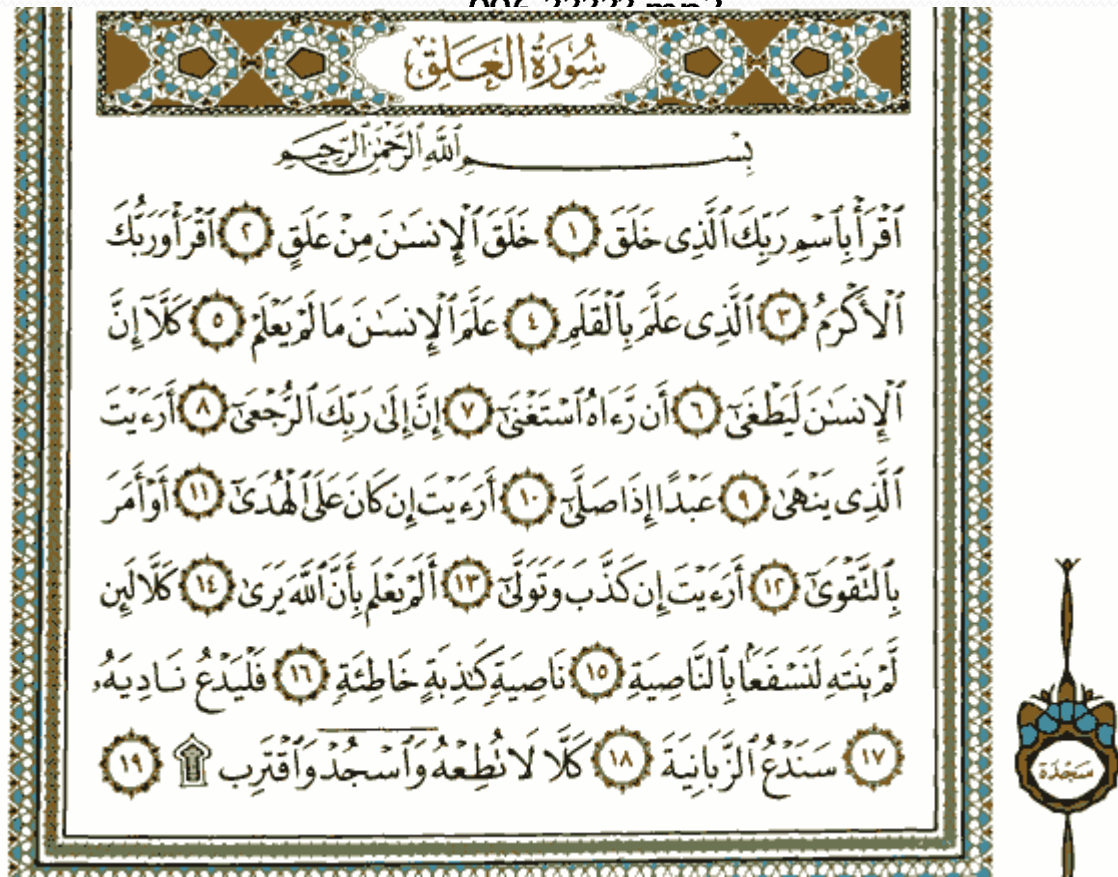 سُورَةُ الْعَلَقِ
بِسْمِ ٱللَّهِ ٱلرَّحْمَٰنِ ٱلرَّحِيمِ
ٱقْرَأْ بِٱسْمِ رَبِّكَ ٱلَّذِى خَلَقَ ١ خَلَقَ ٱلْإِنسَٰنَ مِنْ عَلَقٍ ٢ ٱقْرَأْ وَرَبُّكَ
ٱلْأَكْرَمُ ٣ ٱلَّذِى عَلَّمَ بِٱلْقَلَمِ ٤ عَلَّمَ ٱلْإِنسَٰنَ مَا لَمْ يَعْلَمْ ٥ كَلَّآ إِنَّ
ٱلْإِنسَٰنَ لَيَطْغَىٰٓ ٦ أَن رَّءَاهُ ٱسْتَغْنَىٰٓ ٧ إِنَّ إِلَىٰ رَبِّكَ ٱلرُّجْعَىٰٓ ٨ أَرَءَيْتَ
ٱلَّذِى يَنْهَىٰ ٩ عَبْدًا إِذَا صَلَّىٰٓ ١٠ أَرَءَيْتَ إِن كَانَ عَلَى ٱلْهُدَىٰٓ ١١ أَوْ أَمَرَ
بِٱلتَّقْوَىٰٓ ١٢ أَرَءَيْتَ إِن كَذَّبَ وَتَوَلَّىٰٓ ١٣ أَلَمْ يَعْلَم بِأَنَّ ٱللَّهَ يَرَىٰ ١٤ كَلَّا لَئِن
لَّمْ يَنتَهِ لَنَسْفَعًۢا بِٱلنَّاصِيَةِ ١٥ نَاصِيَةٍ كَٰذِبَةٍ خَاطِئَةٍ ١٦ فَلْيَدْعُ نَادِيَهُۥ
١٧ سَنَدْعُ ٱلزَّبَانِيَةَ ١٨ كَلَّا لَا تُطِعْهُ وَٱسْجُدْ وَٱقْتَرِب ۩ ١٩
سَجْدَة